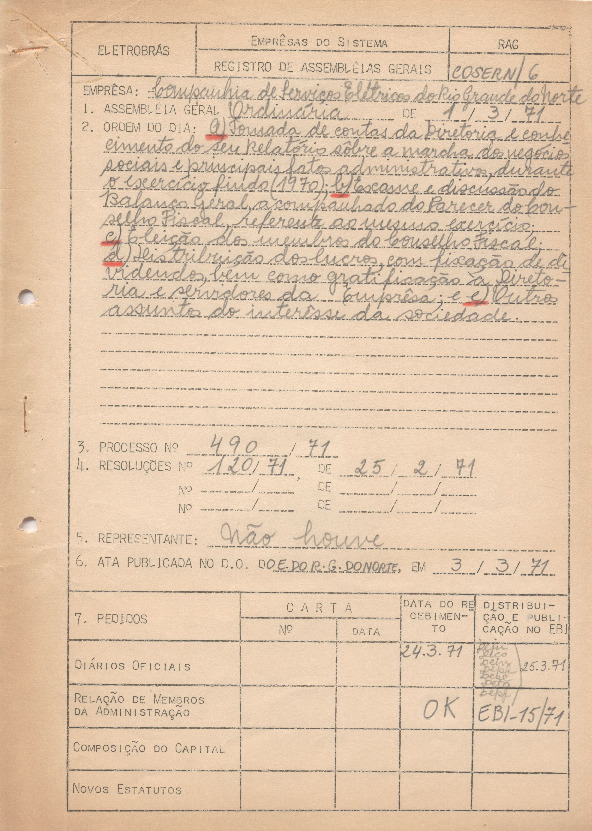 ELETROBRÁS
EMPRÊSAS DO SISTEMA
RAG
REGISTRO DE ASSEMBLÉIAS GERAIS
COSERN/6
EMPRÊSA: Companhia de Serviços Elétricos do Rio Grande do Norte
1. ASSEMBLÉIA GERAL Ordinária DE 1 / 3 / 71
2. ORDEM DO DIA: a) Tomada de contas da Diretoria e conhe-
cimento do seu Relatório sôbre a marcha dos negócios
sociais e principais fatos administrativos, durante
o exercício findo (1970); b) Exame e discussão do
Balanço Geral, acompanhado do Parecer do Con-
selho Fiscal, referente ao mesmo exercício;
c) Eleição dos membros do Conselho Fiscal;
d) Distribuição dos lucros, com fixação de di
videndos, bem como gratificação à Direto-
ria e servidores da Emprêsa; e e) Outros
assuntos do interêsse da sociedade.
3. PROCESSO Nº 490 / 71
4. RESOLUÇÕES Nº 120/71, DE 25 / 2 / 71
Nº / DE / /
Nº / DE / /
5. REPRESENTANTE: Não houve
6. ATA PUBLICADA NO D.O. DO E. DO R. G. DO NORTE, EM 3 / 3 / 71
7. PEDIDOS
CARTA
Nº
DATA
DATA DO RE
CEBIMEN-
TO
DISTRIBUI-
ÇÃO E PUBLI-
CAÇÃO NO EBI
DIÁRIOS OFICIAIS
24.3.71
25.3.71
RELAÇÃO DE MEMBROS
DA ADMINISTRAÇÃO
OK
EBI-15/71
COMPOSIÇÃO DO CAPITAL
NOVOS ESTATUTOS